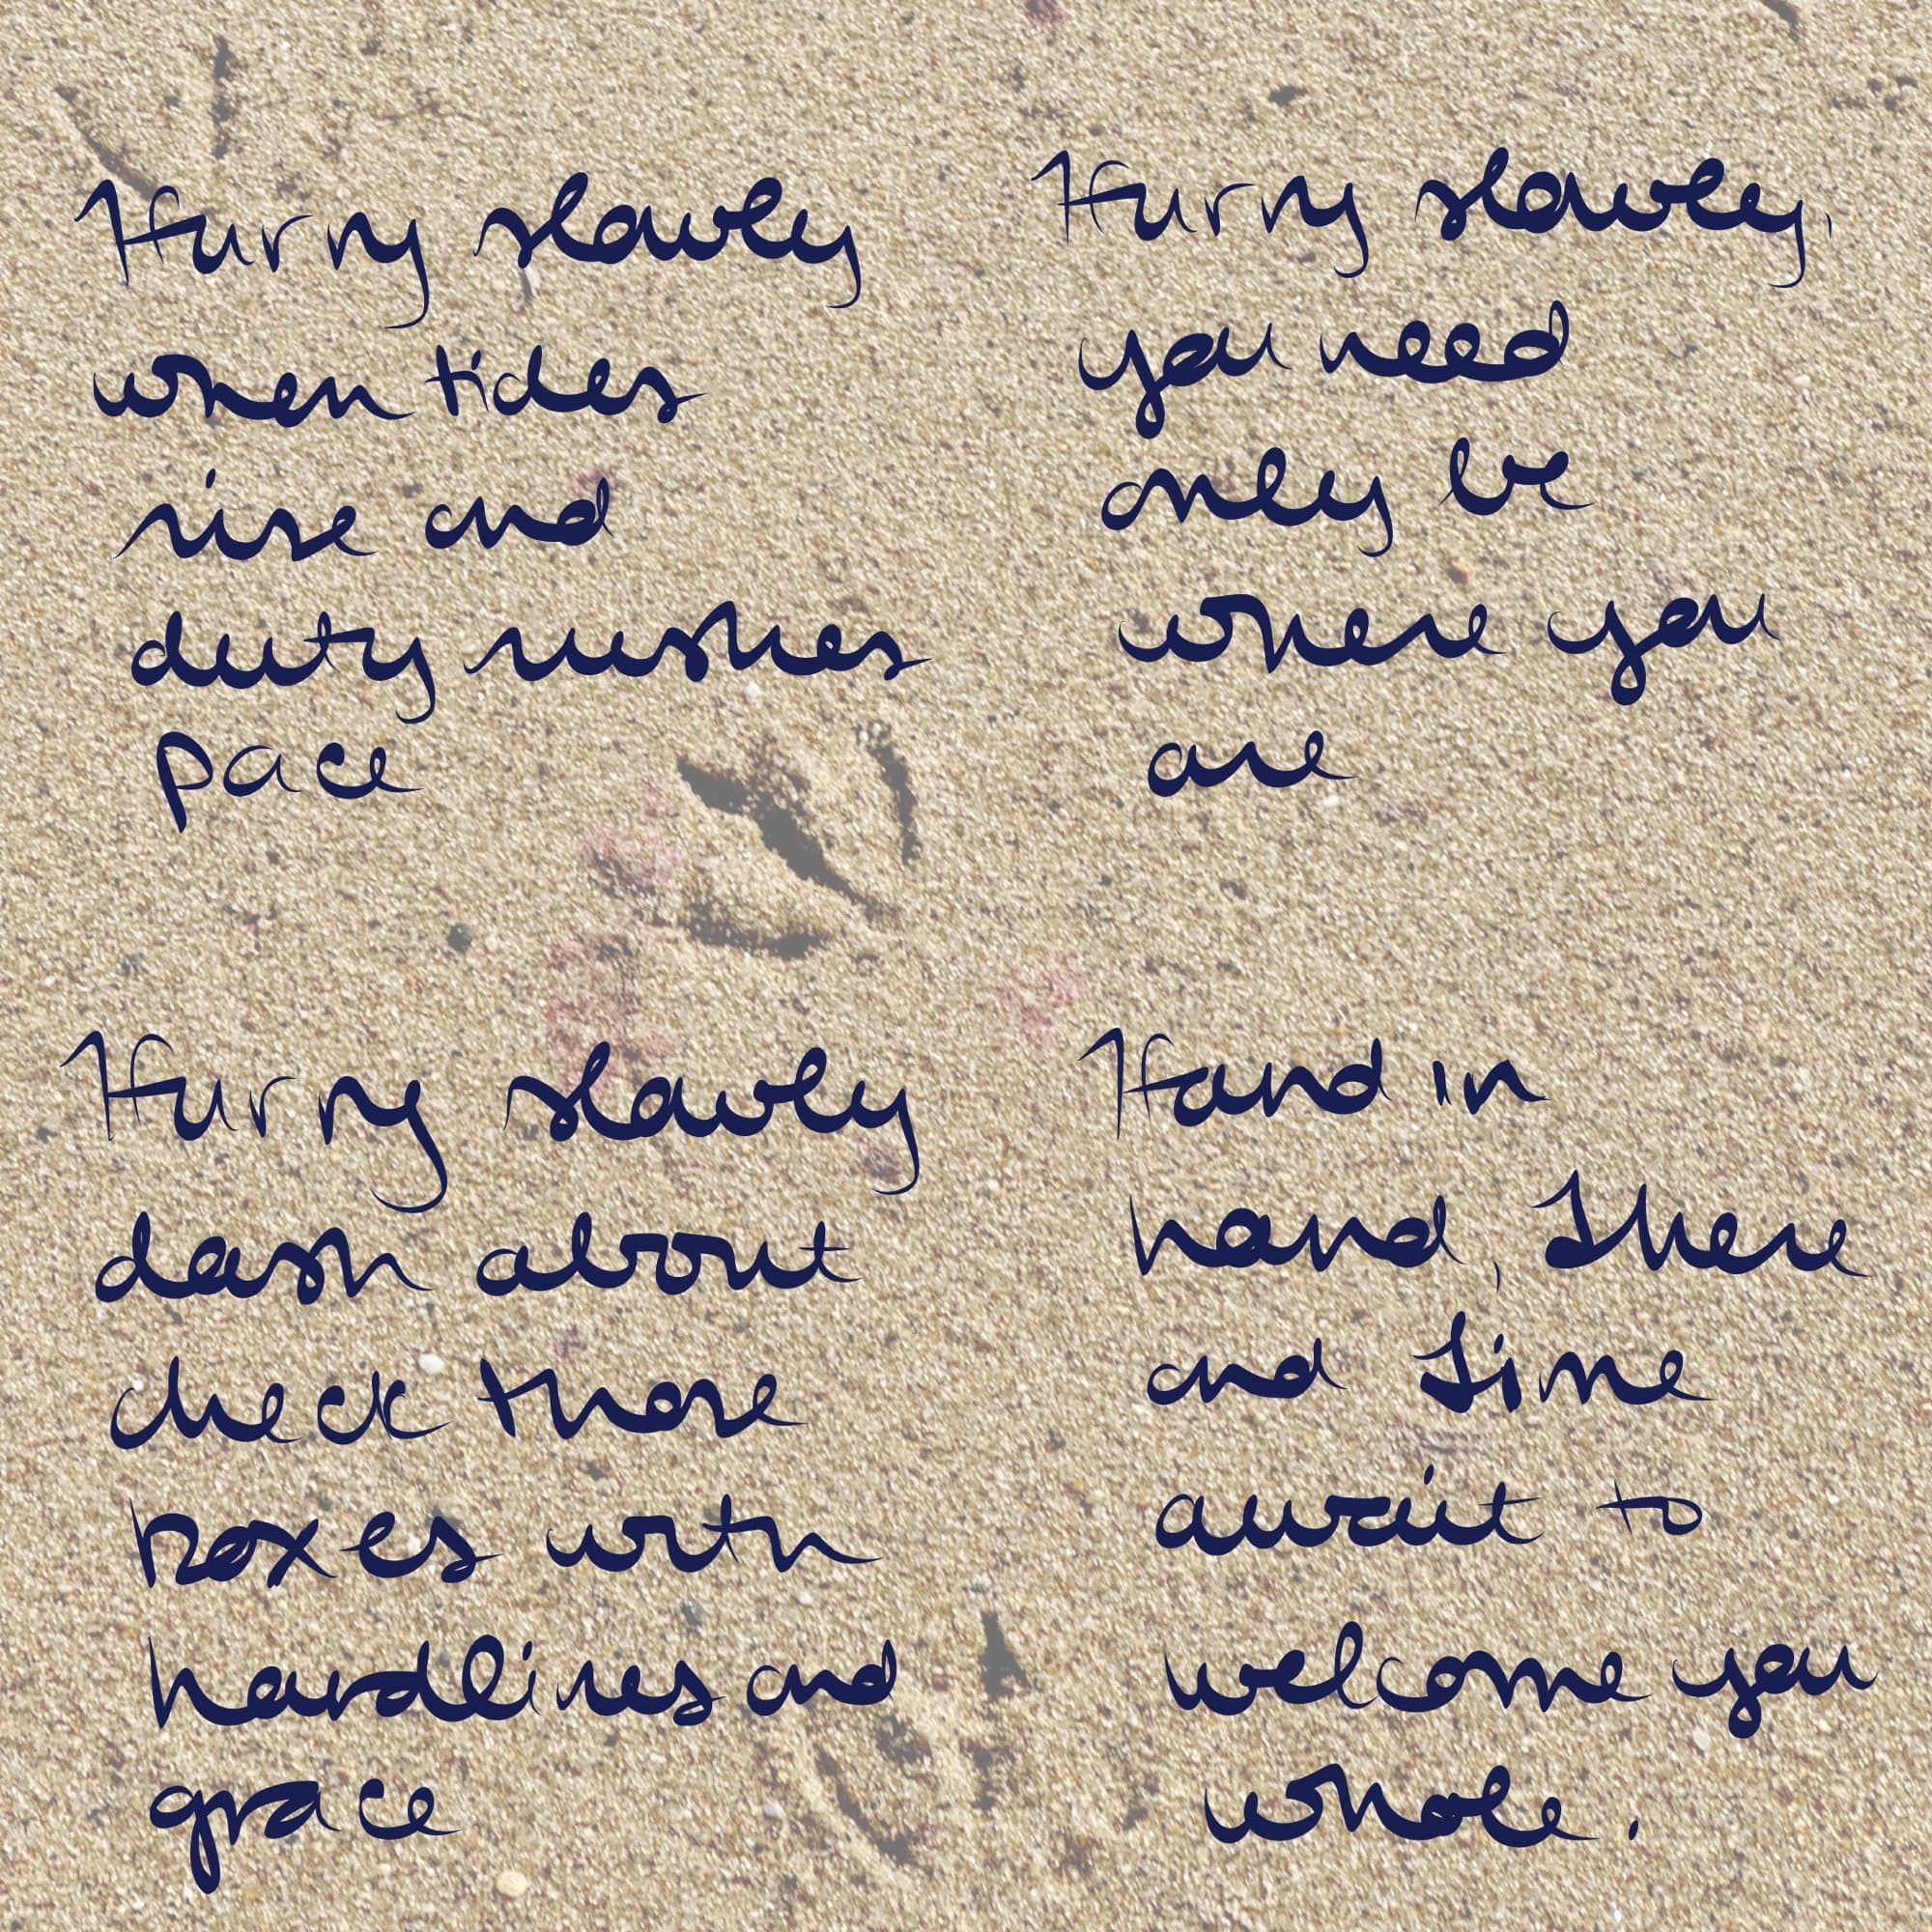 Hurry slowly
when tides
rise and
duty rushes
pace
Hurry slowly
dash about
check those
boxes with
hardlines and
grace
Hurry slowly,
you need
only be
where you
are
Hand in
hand, There
and Time
await to
welcome you
whole.